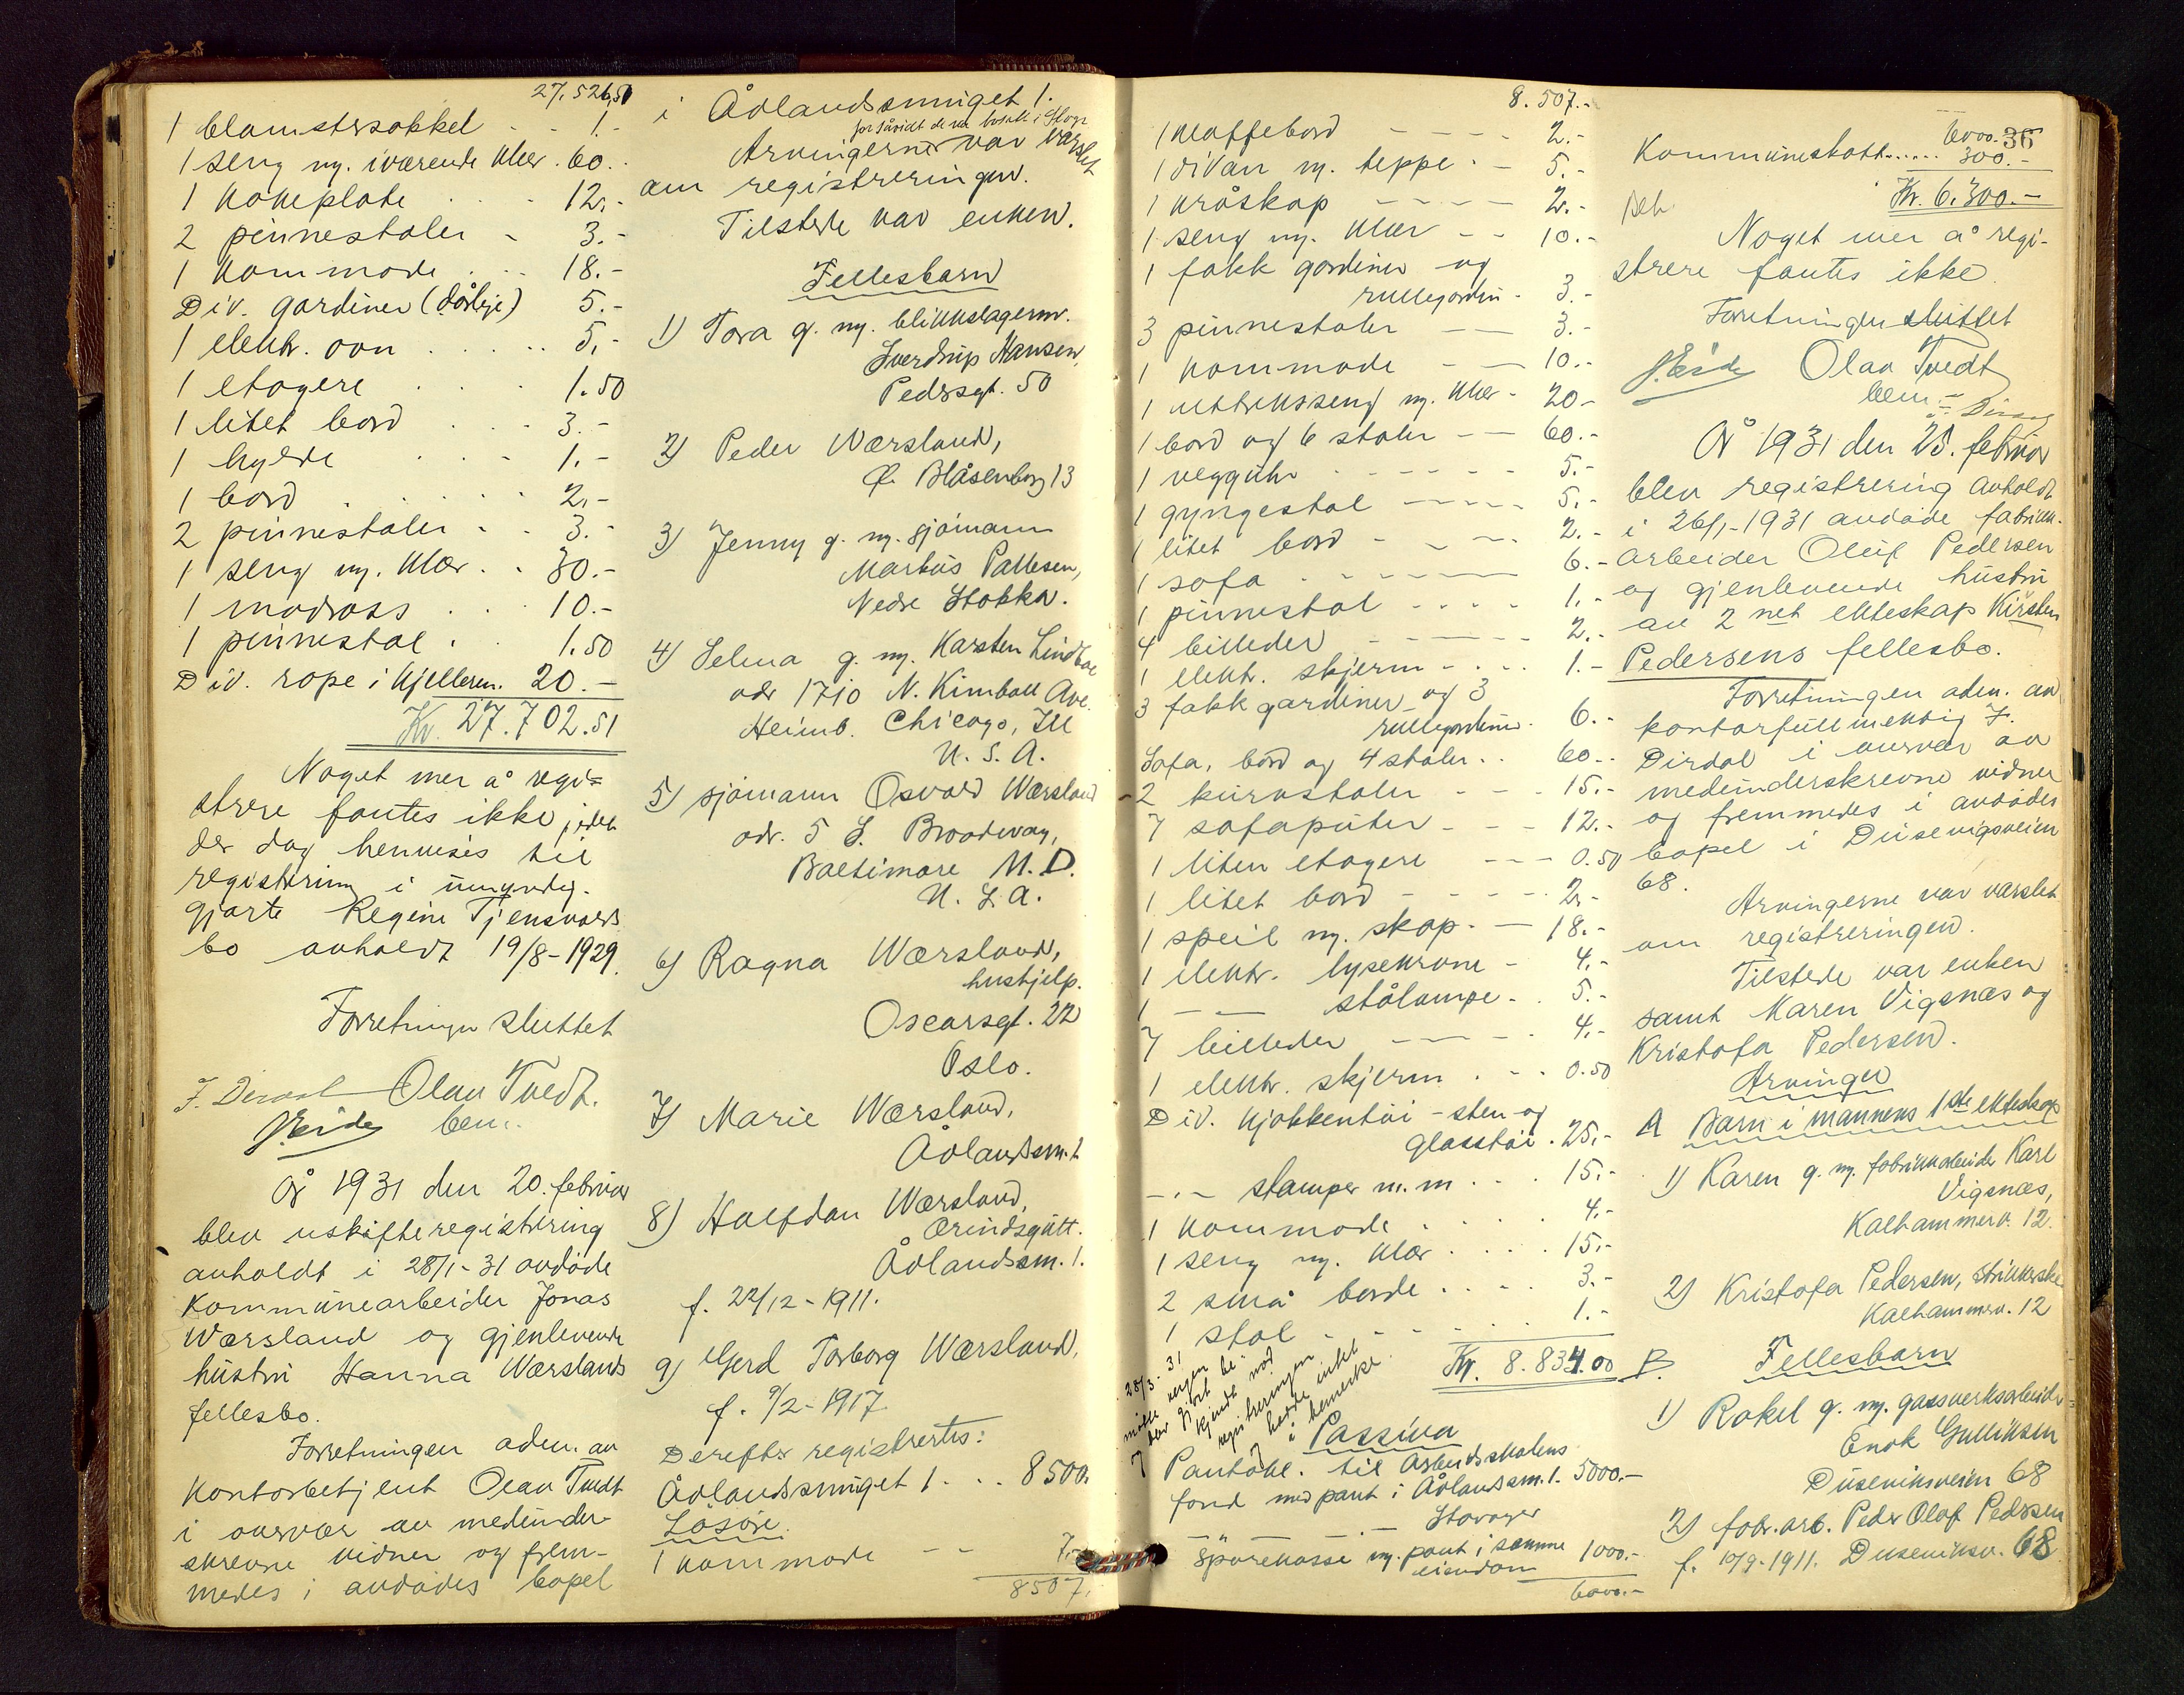 27.526,51
1 blomstersokkel - - 1.-
1 seng m. iværende klær . 60.-
1 kokeplate . . - 12.-
2 pinnestoler - 3.-
1 kommode . . . 18.-
Div. gardiner (dårlige) 5.-
1 elektr. ovn . . . . . 5.-
1 etagere . . . 1.50
1 litet bord . . . 3.-
1 hylde . . - 1.-
1 bord . . . . . . 2.-
2 pinnestoler - . 3.-
1 seng m. klær . . 30.-
1 madrass . . . 10.-
1 pinnestol . 1.50
Div. rope i kjelleren. 20.-
Kr. 27.702.51
Noget mer å regi=
strere fantes ikke, idet
der dog henvises til
registrering i umyndig-
gjorte Regine Tjensvolds
bo avholdt 19/8-1929.
Forretningen sluttet
F. Dirdal Olav Tvedt.
J. Eide bem.
År 1931 den 20. februar
blev uskifteregistrering
avholdt i 28/1-31 avdøde
kommunearbeider Jonas
Wærsland og gjenlevende
hustru Hanna Wærslands
fellesbo.
Forretningen adm. av
kontorbetjent Olav Tvedt
i overvær av medunder-
skrevne vidner og frem-
medes i avdødes bopel
i Ådlandssmuget 1.
for såvidt de var bosatt i Stvgr
Arvingerne var varslet
om registreringen.
Tilstede var enken.
Fellesbarn
1) Tora g. m. blikkslagerm.
Sverdrup Hansen,
Pedersgt. 50
2) Peder Wærsland,
Ø. Blåsenborg 13
3) Jenny g. m. sjømann
Markus Pallesen,
Nedre Stokka.
4) Selma g. m. Karsten Lindboe
adr 1710 N. Kimball Ave.
Heimb. Chicago, Ill
U. S. A.
5) sjømann Osvald Wærsland
adr. 5 S. Broadway,
Baltimore M.D.
U. S. A.
6) Ragna Wærsland,
hushjelp.
Oscarsgt. 22
Oslo.
7) Marie Wærsland,
Ådlandssm. 1
8) Halfdan Wærsland,
ærindsgutt.
Ådlandssm. 1.
f. 22/12-1911.
9) Gerd Torborg Wærsland,
f. 9/2-1917.
Derefter registrertes:
Ådlandssmuget 1 . . . 8500.-
Løsøre.
1 kommode - - 7.-
8507.
8.507.-
1 kaffebord - - - - 2.-
1 divan m. teppe . - 5.-
1 kråskap - - - - - 2.-
1 seng m. klær - - 10.-
1 fakk gardiner og
rullegardin - 3.-
3 pinnestoler - - 3.-
1 kommode - - 10.-
1 uttrekksseng m. klær - 20-
1 bord og 6 stoler - - 60.-
1 veggur - - - - - - 5.-
1 gyngestol - - - - 5.-
1 litet bord - - - - 2.-
1 sofa - - - - - - 6.-
1 pinnestol - - - - 1.-
4 billeder - - - - - 2.-
1 elektr. skjerm - . . . 1.-
3 fakk gardiner og 3
rullegardiner . 6.-
Sofa, bord og 4 stoler . . 60.-
2 kurvstoler - - - 15.-
7 sofaputer - - - 12.-
1 liten etagere - - - 0.50
1 litet bord - - - - - 2.-
1 speil m. skap . - 18.-
1 elektr. lysekrone - 4.-
1 - - stålampe . . 5.-
7 billeder - - - - 4.-
1 elektr. skjerm . - . 0.50
Div. kjøkkentøi - sten og
glasstøi . 25.-
- . - stamper m. m . . . 15.-
1 kommode . . . . . . 4.-
1 seng m. klær . . . . 15.-
2 små borde . . . . 3.-
1 stol - - - - . . . 1.-
Kr. 8.834.00
28/3-31
møtte vergen
blev gjort be-
kjendt med
registreringen
og hadde intet
å bemerke.
Passiva
Pantobl. til Arbeidsskolens
fond med pant i Ådlandssm. 1. 5000.-
- . - Stavanger
Sparekasse m. pant i samme
eiendom 1000.-
6000.-
6000.-
36
Kommuneskatt...... 300.-
Kr. 6.300.-
Noget mer å regi-
strere fantes ikke.
Forretningen sluttet
J. Eide Olav Tvedt
bem.
År 1931 den 25. februar
blev registrering avholdt
i 26/1-1931 avdøde fabrikk-
arbeider Oluf Pedersen
og gjenlevende hustru
av 2 net ekteskap Kirsten
Pedersens fellesbo.
Forretningen adm. av
kontorfullmektig F.
Dirdal i overvær av
medunderskrevne vidner
og fremmedes i avdødes
bopel i Dusevigsveien
68.
Arvingerne var varslet
om registreringen.
Tilstede var enken
samt Karen Vigsnæs og
Kristofa Pedersen.
Arvinger
A Barn i mannens 1ste ekteskap
1) Karen g. m. fabrikkarbeider Karl
Vigsnæs,
Kalhammerv. 12.
2) Kristofa Pedersen, strikkerske
Kalhammerv. 12
B. Fellesbarn
1) Rakel g. m. gassverksarbeider
Enok Gulliksen
Duseviksveien 68
2) fabr.arb. Peder Olaf Pedersen
f. 10/9-1911. Duseviksv. 68